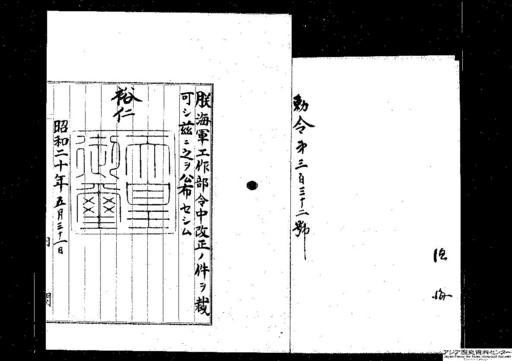 勅令第三百三十二號
朕海軍工作部令中改正ノ件ヲ裁
可シ茲ニ之ヲ公布セシム
裕仁
天皇御璽
昭和二十年五月三十一日
アジア歴史資料センター